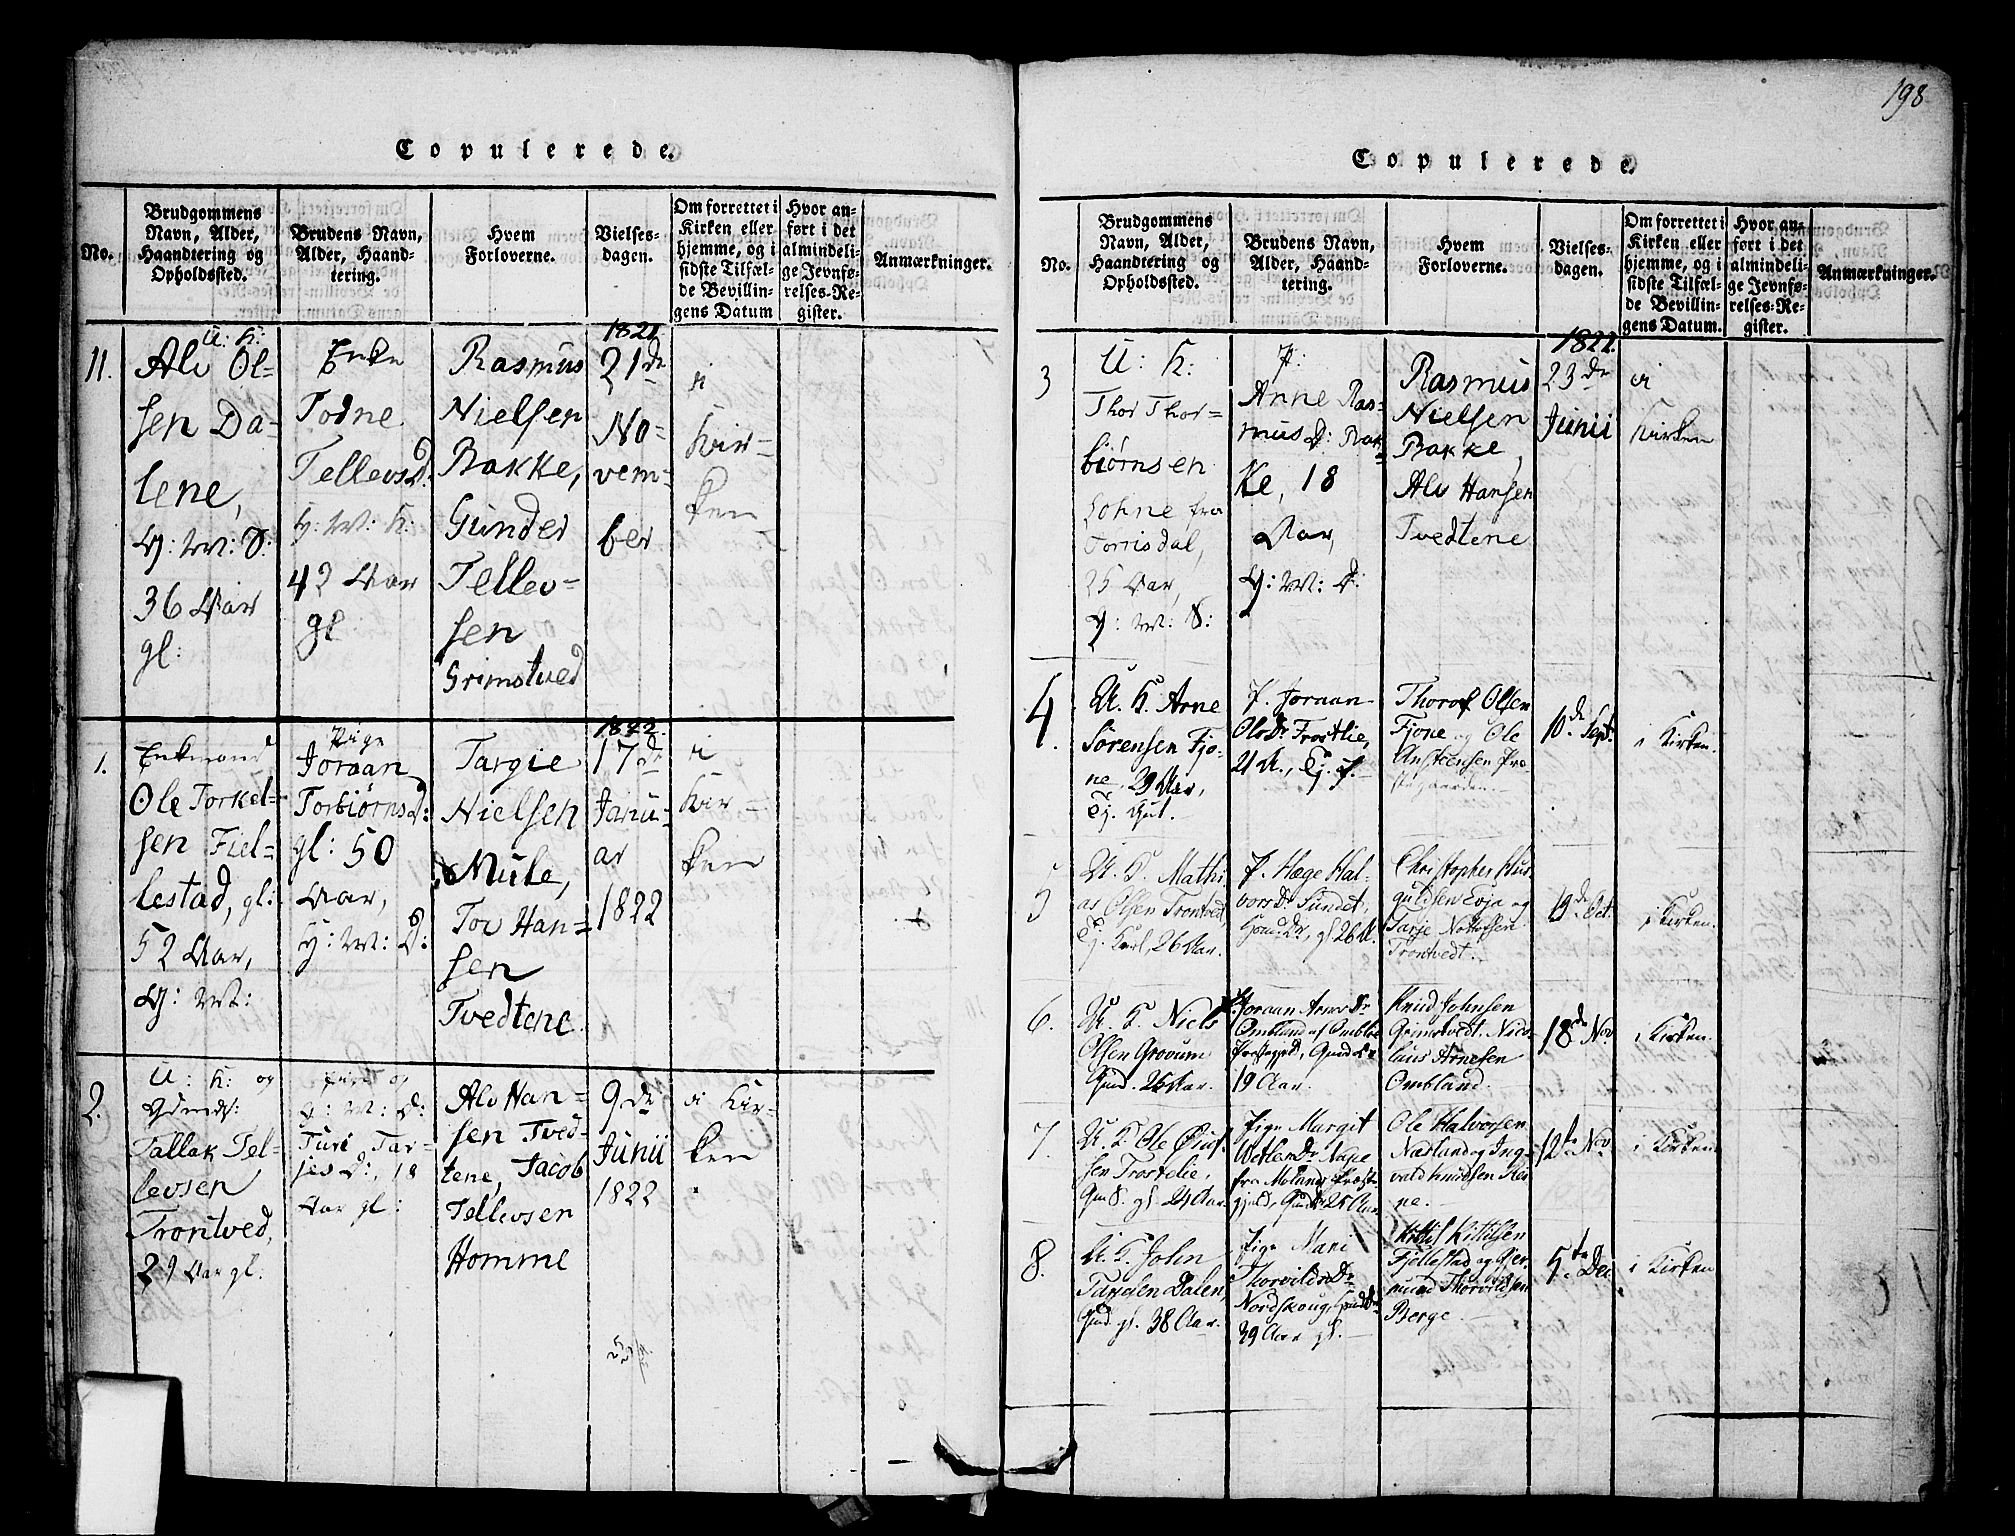 198
Copulerede.
No.
Brudgommens
Navn, Alder,
Haandtering og
Opholdssted.
Brudens Navn,
Alder, Haand-
tering.
Hvem
Forloverne.
Vielses-
dagen.
Om forrettet i
Kirken eller
hjemme, og i
sidste Tilfæl-
de Bevillin-
gens Datum
Hvor an-
ført i det
almindeli-
ge Jevnfø-
relses-Re-
gister.
Anmærkninger.
11.
U: K:
Alv Ol=
sen Da=
lene,
36 Aar
gl:
Enke
Todne
Tellevsd:
42 Aar
gl
Rasmus
Nielsen
Bakke,
Gunder
Tellev=
sen
Grimstved
1821
21de
No-
vem-
ber
i
Kir=
ken
1.
Enkmand
Ole Torkel=
sen Fiel=
lestad, gl:
52 Aar,
Pige
Joraan
Torbiørnsd:
gl: 50
Aar,
Targie
Nielsen
Mule,
Tov Han=
sen
Tvedtene
1822.
17de
Janu=
ar
1822
i
Kir=
ken
2.
U: K: og
Tallak Tel=
levsen
Trontved,
29 Aar gl:
Pige og
Turi Tar=
jes D:, 18
Aar gl:
Alv Han=
sen Tved=
tene, Jacob
Tellevsen
Homme
9de
Junii
1822
i Kir=
ken
Copulerede.
No.
Brudgommens
Navn, Alder,
Haandtering og
Opholdssted.
Brudens Navn,
Alder, Haand-
tering.
Hvem
Forloverne.
Vielses-
dagen.
Om forrettet i
Kirken eller
hjemme, og i
sidste Tilfæl-
de Bevillin-
gens Datum.
Hvor an-
ført i det
almindeli-
ge Jevnfø-
relses-Re-
gister.
Anmærkninger.
3
U: K:
Thor Thor=
biørnsen
Lohne fra
Torrisdal,
25 Aar,
P:
Anne Ras=
mus D: Bak=
ke, 18
Aar,
Rasmus
Nielsen
Bakke,
Alv Hansen
Tvedtene
1822.
23de
Junii
i
Kirken
4.
U. K. Arne
Sörensen Fjo=
ne, 29 Aar,
Ej. Gut.
P. Joraan
Olsdr. Frostlie,
21 A., Ej. P.
Thorof Olsen
Fjone og Ole
Ansteensen Præ
stegaarden.
10de Sept.
i Kirken.
5
U. K. Mathi
as Olsen Trontved,
Ej. Karl, 26 Aar.
P. Hæge Hal=
vorsdr. Sundet,
gl. 26 A.
Christopher
og
Tarje Nottolfsen
Trontvedt.
19de Oct.
i Kirken.
6.
U. K. Niels
Olsen Grovum
Gmd. 26 Aar.
Joraan Arnesdr.
Ombland af Omblie
19 Aar.
Knud Johnsen
Grimstvedt. Nico=
laus Arnesen
Ombland.
18de Nov
i Kirken.
7.
U. K. Ole
sen Trostelie,
gl. 24 Aar.
Pige Margit
fra Molands Præst=
gjeld, 25 Aar
Ole Halvorsen
Næsland og Ing=
vald Knudsen Rei
ne.
12te Nov.
i Kirken
8.
U. K. John
Tarjesen Dalen,
Gmd. gl. 38 Aar.
Pige Mari
Thorvildsdr.
Nordskoug,
29 Aar gl.
Kittil Kittilsen
Fjellestad og Gjer
mund Thorvildsen
Berge.
5te Dec
i Kirken